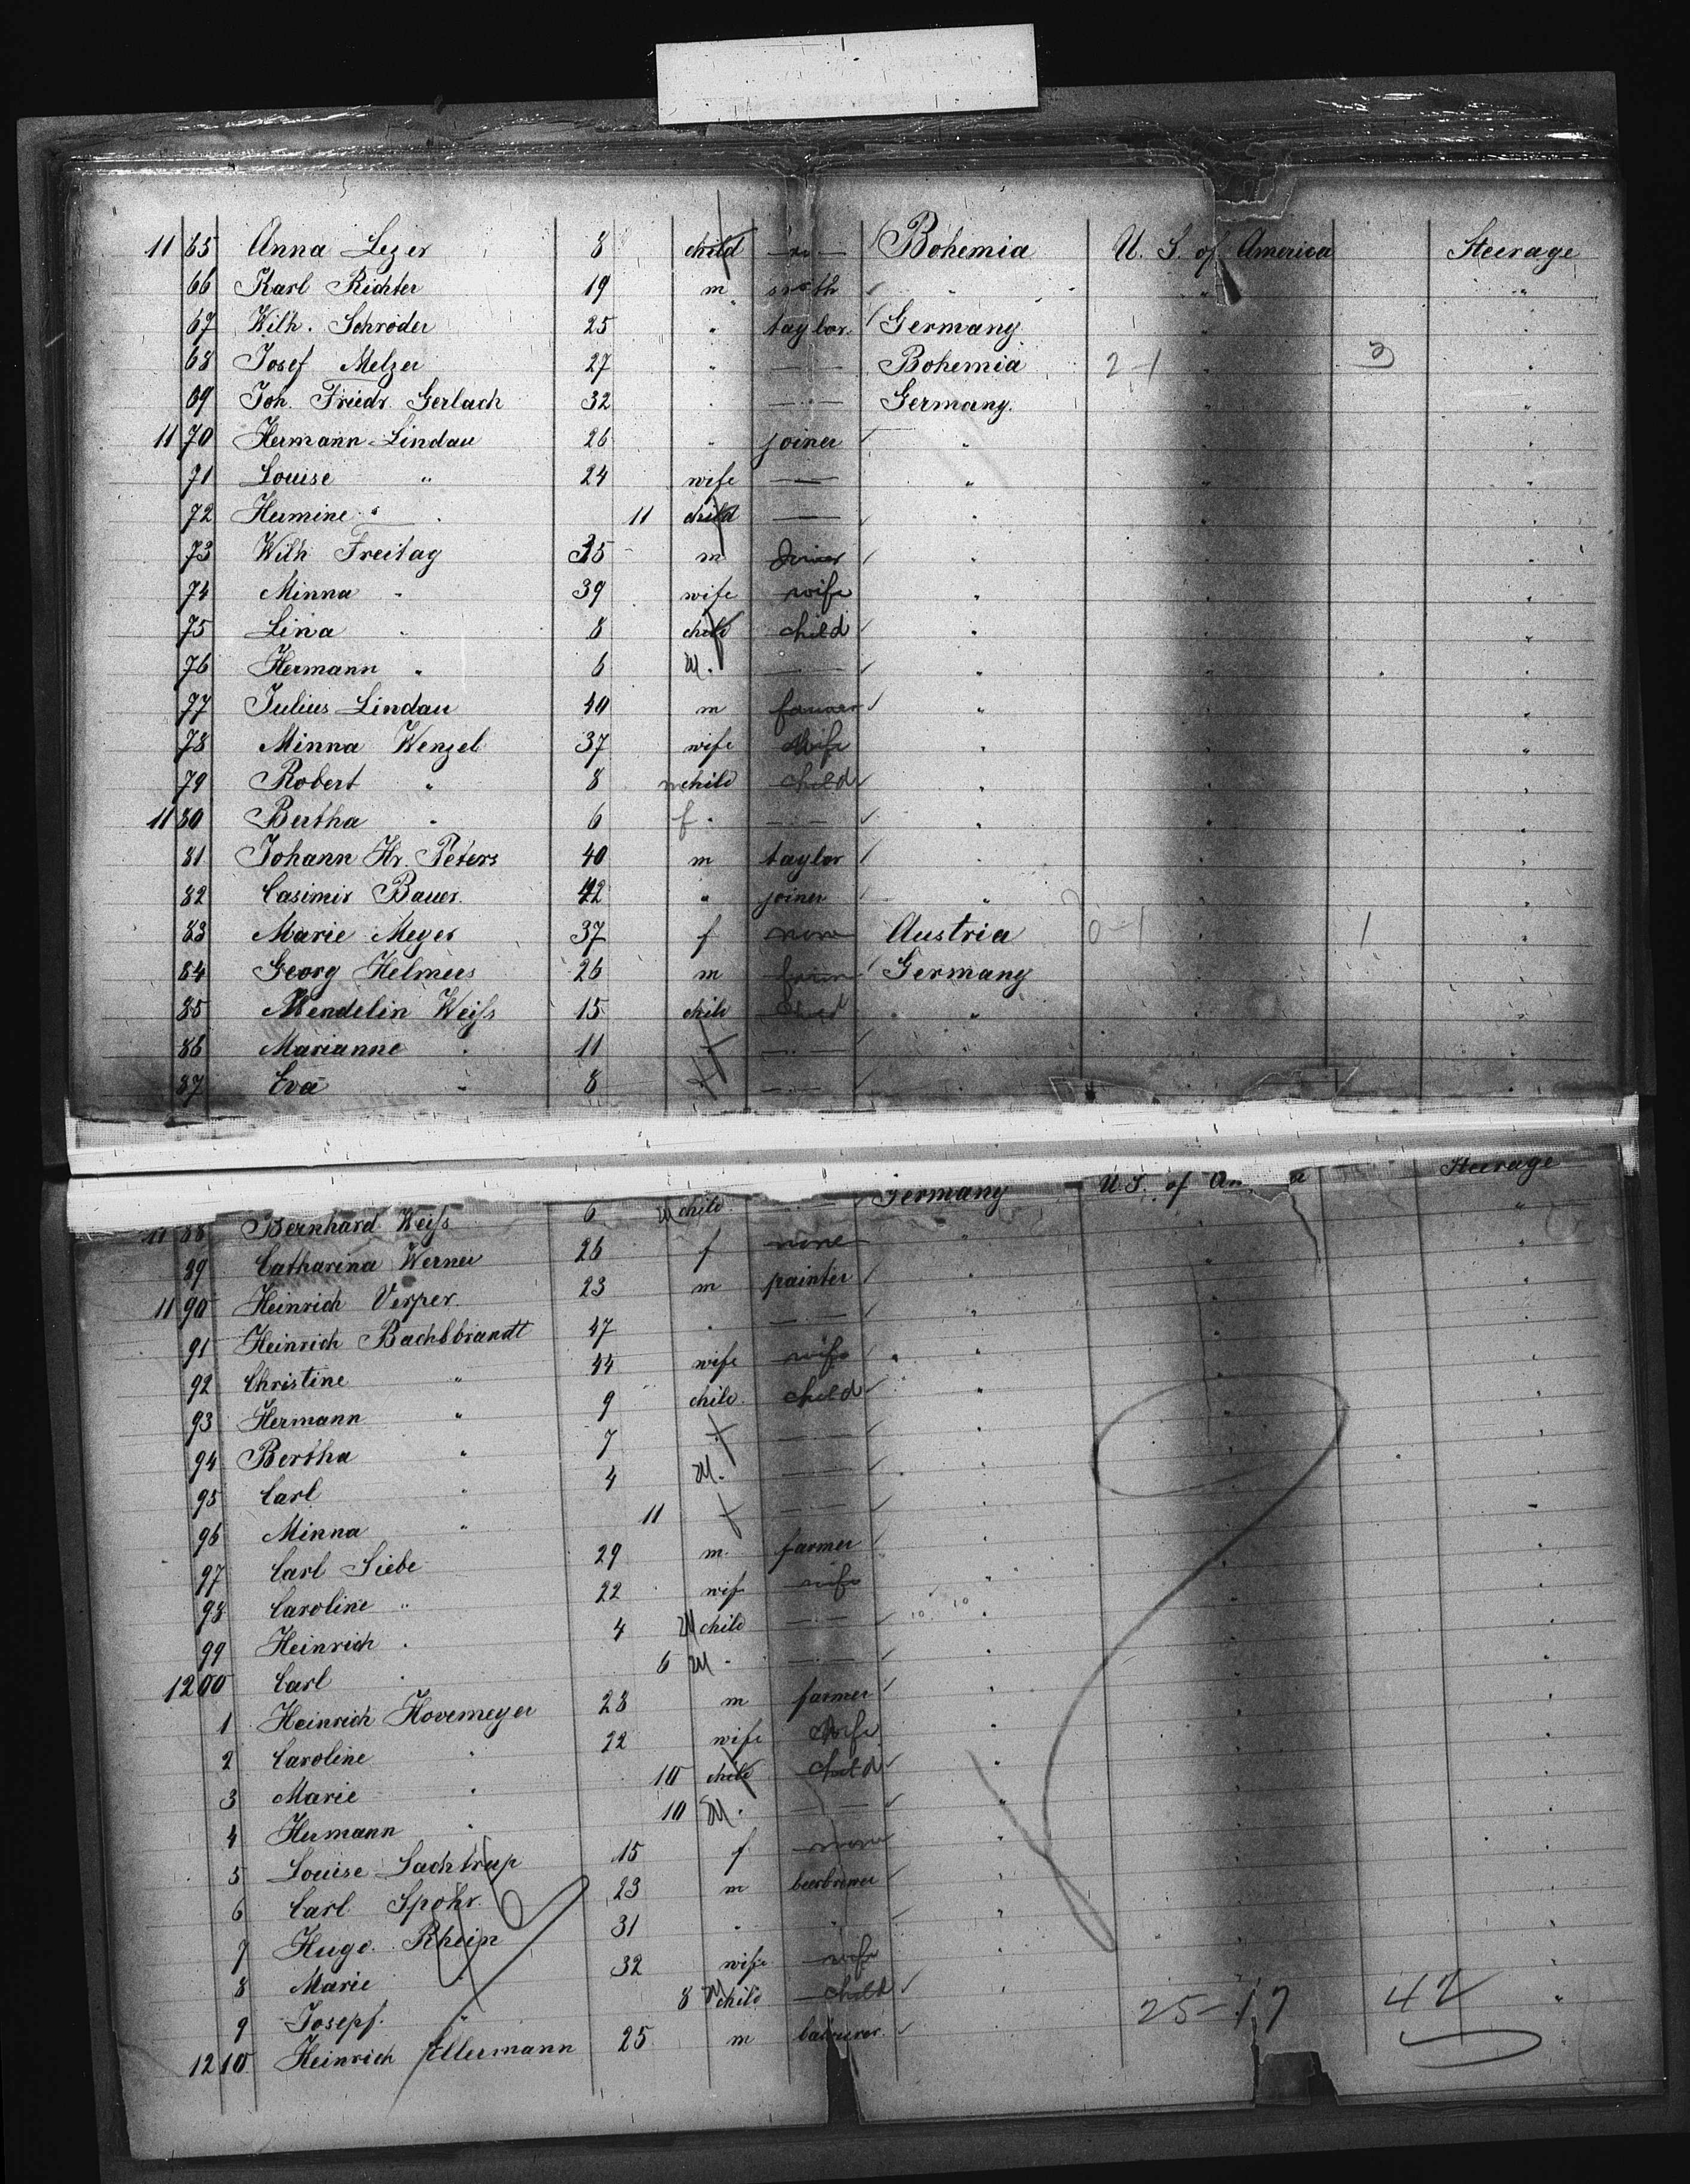 11 65 Anna Lezer 8 child Bohemia U. S. of America Steerage
66 Karl Richter 19 m smith " " "
67 Wilh. Schröder 25 " taylor Germany " "
68 Josef Melzer 27 " — Bohemia 2-1 " 3 "
69 Joh. Friedr. Gerlach 32 " — Germany. " "
11 70 Hermann Lindau 26 " joiner " " "
71 Louise " 24 wife — " " "
72 Hermine " 11 child — " " "
73 Wilh Freitag 35 m " " "
74 Minna " 39 wife wife " " "
75 Lina " 8 child child " " "
76 Hermann " 6 M. — " " "
77 Julius Lindau 40 m farmer " " "
78 Minna Wenzel 37 wife wife " " "
79 Robert " 8 m child child " " "
11 80 Bertha " 6 f " — " " "
81 Johann Hr. Peters 40 m taylor " " "
82 Casimir Bauer 42 " joiner " " "
83 Marie Meyer 37 f none Austria 0-1 " 1 "
84 Georg Helmers 26 m Germany " "
85 Wendelin Weiss 15 child child " " "
86 Marianne " 11 f — " " "
87 Eva " 8 f — " " "
11 88 Bernhard Weiss 6 M child — Germany U.S. of Steerage
89 Catharina Werner 26 f none " " "
11 90 Heinrich Verper 23 m painter " " "
91 Heinrich Bachbbrandt 47 " — " " "
92 Christine " 44 wife wife " " "
93 Hermann " 9 child child " " "
94 Bertha " 7 f — " " "
95 Carl " 4 M. — " " "
96 Minna " 11 f — " " "
97 Carl Siebe 29 m farmer " " "
98 Caroline " 22 wife wife " " "
99 Heinrich " 4 M child — " " "
1200 Carl " 6 M " — " " "
1 Heinrich Hovemeyer 28 m farmer " " "
2 Caroline " 22 wife wife " " "
3 Marie " 10 child child " " "
4 Hermann " 10 M " — " " "
5 Louise Sachtrup 15 f none " " "
6 Carl Spohr 23 m beerbrewer " " "
7 Hugo Rhein 31 " " " " "
8 Marie " 32 wife wife " " "
9 Josepf. " 8 M child child " 25-17 42 "
1210 Heinrich Ellermann 25 m labourer "